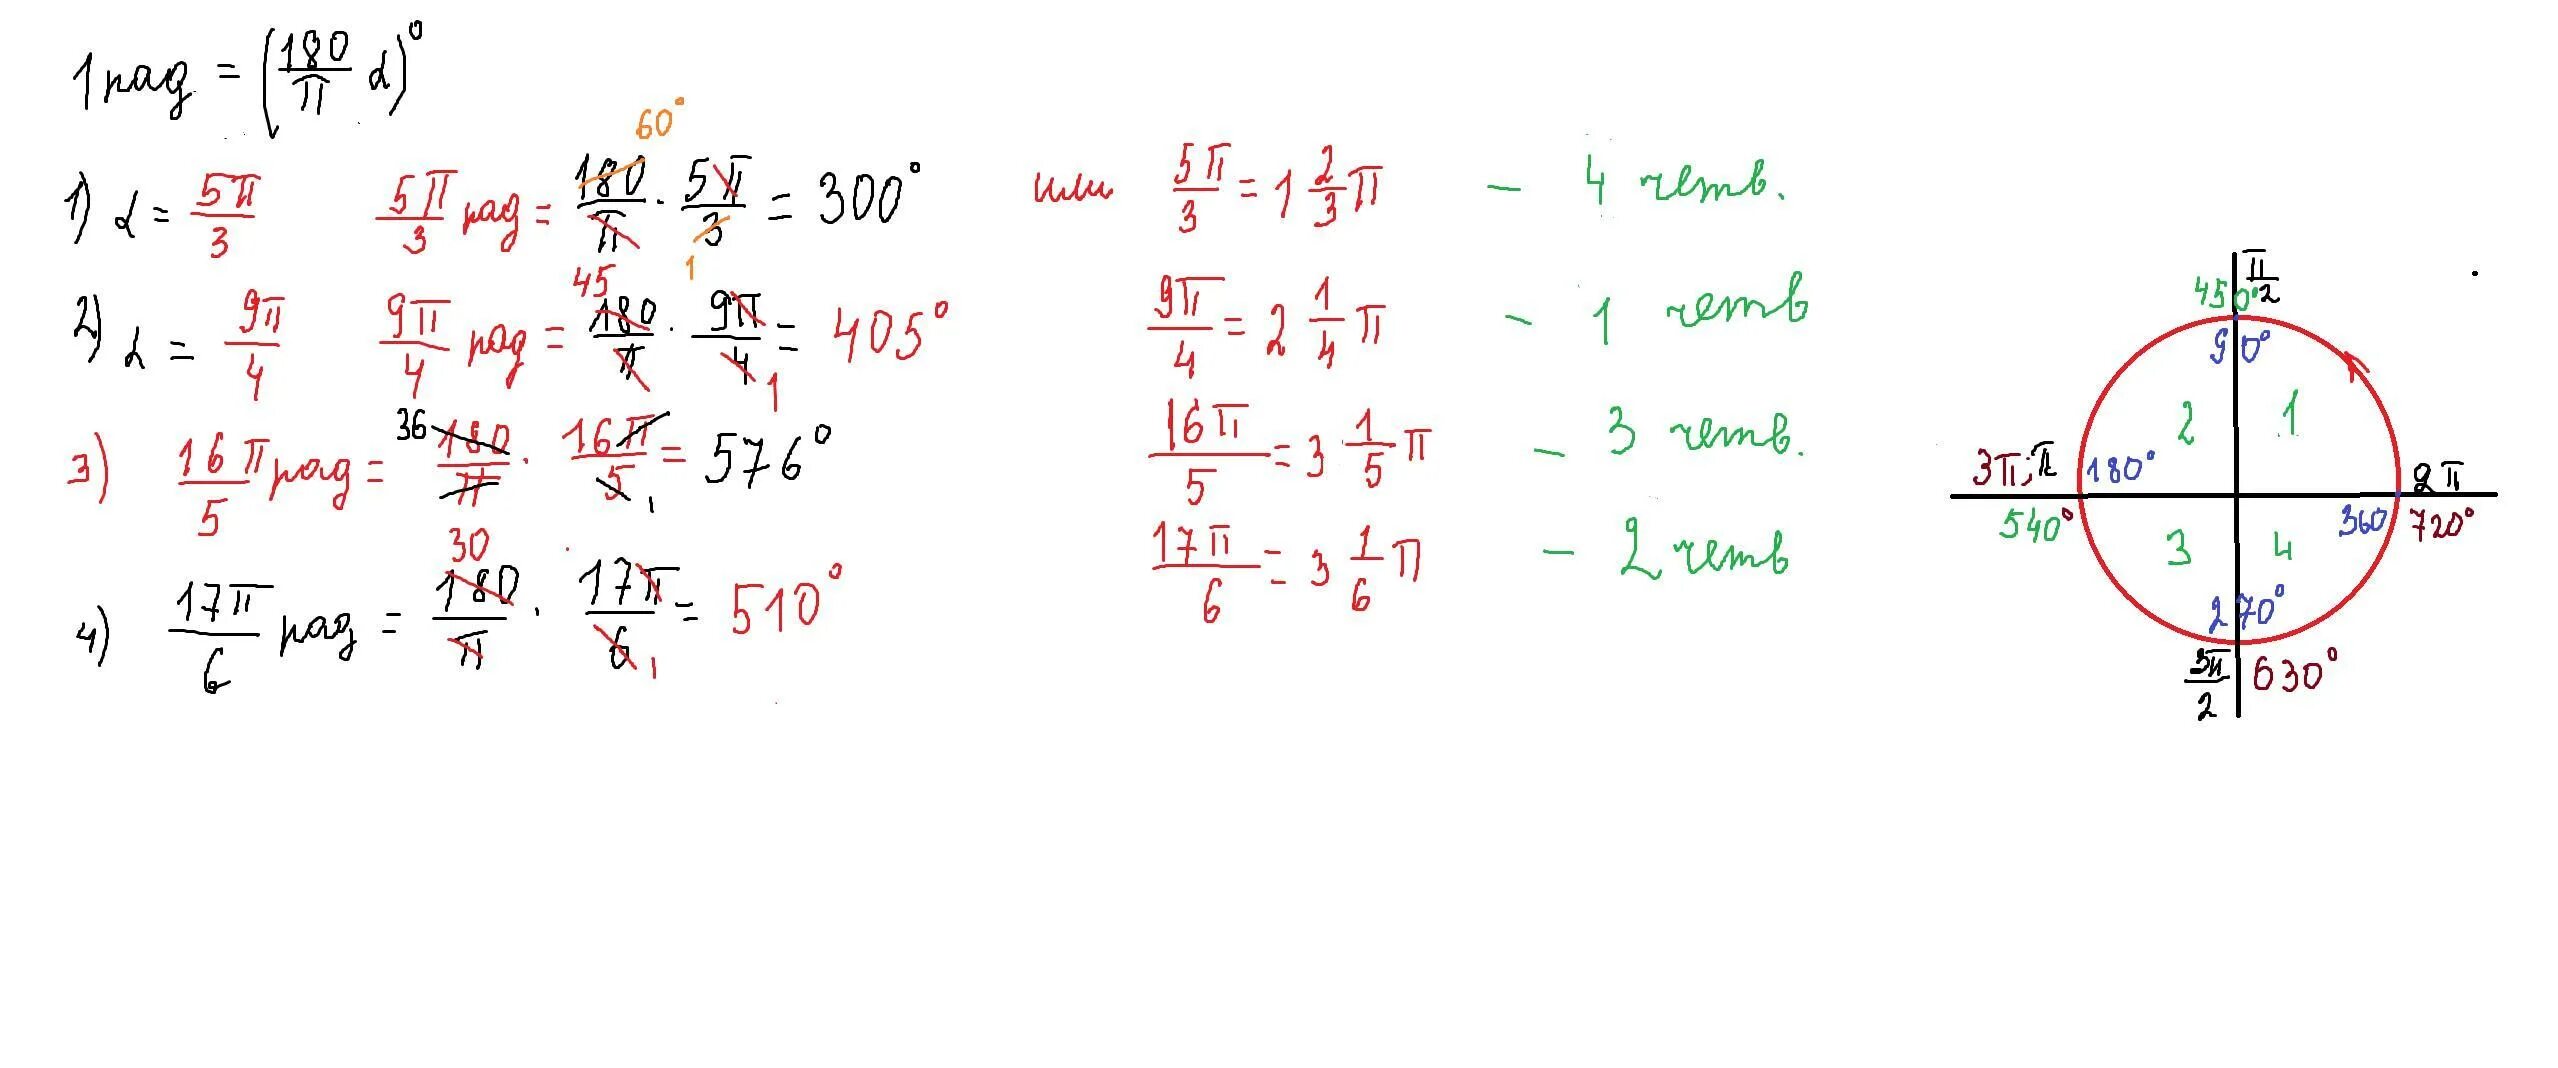 1 рад = (180/π α)°
1) α = 5π/3   5π/3 рад = 180/π · 5π/3 = 300°   или   5π/3 = 1 2/3 π   – 4 четв.
60°
1
2) α = 9π/4   9π/4 рад = 180/π · 9π/4 = 405°   9π/4 = 2 1/4 π   – 1 четв
45
1
3) 16π/5 рад = 180/π · 16π/5 = 576°   16π/5 = 3 1/5 π   – 3 четв.
36
1
4) 17π/6 рад = 180/π · 17π/6 = 510°   17π/6 = 3 1/6 π   – 2 четв
30
1
π/2
450°
90°
2 1
3π; π 180° 2π
540° 360 720°
3 4
270°
3π/2 630°